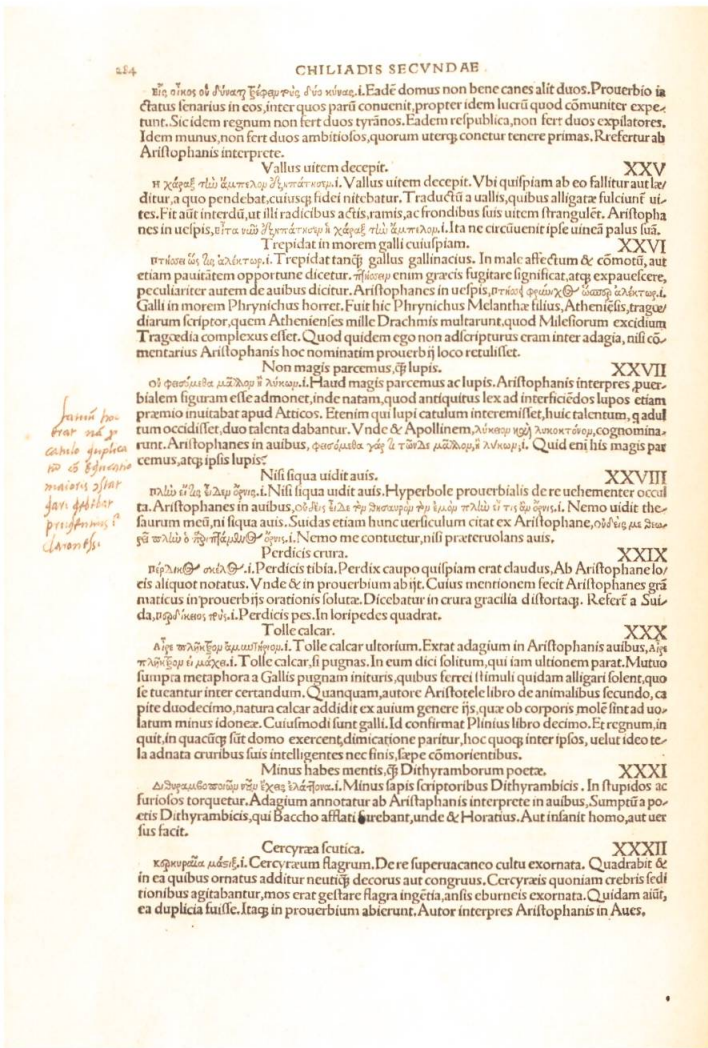 284 CHILIADIS SECVNDAE
Εἷς οἶκος οὐ δύναται τρέφειν τοὺς δύο κύνας.i.Eadē domus non bene canes alit duos.Prouerbio ia
ctatus senarius in eos,inter quos parū conuenit,propter idem lucrū quod cōmuniter expe⸗
tunt.Sic idem regnum non fert duos tyrānos.Eadem respublica,non fert duos expilatores.
Idem munus,non fert duos ambitiosos,quorum uterqꝫ conetur tenere primas.Rrefertur ab
Aristophanis interprete.
Vallus uitem decepit. XXV
Η χάραξ τὴν ἄμπελον ἐξηπάτησεν.i.Vallus uitem decepit.Vbi quispiam ab eo fallitur aut læ⸗
ditur,a quo pendebat,cuiusqꝫ fidei nitebatur.Traductū a uallis,quibus alligatæ fulciunt̄ ui⸗
tes.Fit aūt interdū,ut illi radicibus actis,ramis,ac frondibus suis uitem strangulēt.Aristopha
nes in uespis,εἶτα νῦν ἐξηπάτησεν ἡ χάραξ τὴν ἄμπελον.i.Ita ne circūuenit ipse uineā palus suā.
Trepidat in morem galli cuiuspiam. XXVI
πτήσσει ὥς τις ἀλέκτωρ.i.Trepidat tanqꝫ gallus gallinacius. In male affectum & cōmotū,aut
etiam pauitātem opportune dicetur. πτήσσειν enim græcis fugitare significat,atqꝫ expauescere,
peculiariter autem de auibus dicitur.Aristophanes in uespis,πτήσσει φρύνιχος ὥσπερ ἀλέκτωρ.i.
Galli in morem Phrynichus horret. Fuit hic Phrynichus Melanthæ filius,Atheniēsis,tragœ⸗
diarum scriptor,quem Athenienses mille Drachmis multarunt,quod Milesiorum excidium
Tragœdia complexus esset. Quod quidem ego non adscripturus eram inter adagia,nisi cō⸗
mentarius Aristophanis hoc nominatim prouerbij loco retulisset.
Non magis parcemus,qꝫ lupis. XXVII
Οὐ φεισόμεθα μᾶλλον ἢ λύκων.i.Haud magis parcemus ac lupis.Aristophanis interpres,puer⸗
bialem figuram esse admonet,inde natam,quod antiquitus lex ad interficiēdos lupos etiam
præmio inuitabat apud Atticos. Etenim qui lupi catulum interemisset,huic talentum,q adul
tum occidisset,duo talenta dabantur. Vnde & Apollinem,λύκειον καὶ λυκοκτόνον,cognomina⸗
runt.Aristophanes in auibus, φεισόμεθα γάρ τι τῶνδε μᾶλλον,ἢ λύκων.i. Quid eni his magis par
cemus,atqꝫ ipsis lupis?
Nisi siqua uidit auis. XXVIII
πλὴν εἴ τις εἶδεν ὄρνις.i.Nisi siqua uidit auis.Hyperbole prouerbialis de re uehementer occul
ta.Aristophanes in auibus,οὐδεὶς εἶδε τὸν θησαυρὸν τὸν ἐμὸν πλὴν εἴ τις ἂν ὄρνις.i. Nemo uidit the⸗
saurum meū,ni siqua auis.Suidas etiam hunc uersiculum citat ex Aristophane,οὐδείς με θεω⸗
ρεῖ πλὴν ὁ παριπτάμενος ὄρνις.i.Nemo me contuetur,nisi præteruolans auis.
Perdicis crura. XXIX
πέρδικος σκέλος.i.Perdicis tibia.Perdix caupo quispiam erat claudus,Ab Aristophane lo⸗
cis aliquot notatus. Vnde & in prouerbium abijt. Cuius mentionem fecit Aristophanes grā
maticus in prouerbijs orationis solutæ. Dicebatur in crura gracilia distortaqꝫ. Refert̄ a Sui⸗
da,περδίκειος πούς.i.Perdicis pes.In loripedes quadrat.
Tolle calcar. XXX
Αἶρε πλῆκτρον ἀμυντήριον.i.Tolle calcar ultorium.Extat adagium in Aristophanis auibus,Αἶρε
πλῆκτρον εἰ μάχει.i.Tolle calcar,si pugnas.In eum dici solitum,qui iam ultionem parat.Mutuo
sumpta metaphora a Gallis pugnam inituris,quibus ferrei stimuli quidam alligari solent,quo
se tueantur inter certandum. Quanquam,autore Aristotele libro de animalibus secundo,ca
pite duodecimo,natura calcar addidit ex auium genere ijs,quæ ob corporis molē sint ad uo⸗
latum minus idoneæ.Cuiusmodi sunt galli.Id confirmat Plinius libro decimo.Et regnum,in
quit,in quacūqꝫ sūt domo exercent,dimicatione paritur,hoc quoqꝫ inter ipsos,uelut ideo te⸗
la adnata cruribus suis intelligentes nec finis,sæpe cōmorientibus.
Minus habes mentis,qꝫ Dithyramborum poetæ. XXXI
Διθυραμβοποιῶν νοῦν ἔχεις ἐλάττονα.i.Minus sapis scriptoribus Dithyrambicis . In stupidos ac
furiosos torquetur. Adagium annotatur ab Aristaphanis interprete in auibus,Sumptū a po⸗
etis Dithyrambicis,qui Baccho afflati furebant,unde & Horatius. Aut insanit homo,aut uer
sus facit.
Cercyræa scutica. XXXII
κερκυραία μάστιξ.i.Cercyræum flagrum.De re superuacaneo cultu exornata. Quadrabit &
in ea quibus ornatus additur neutiqꝫ decorus aut congruus.Cercyræis quoniam crebris sedi
tionibus agitabantur,mos erat gestare flagra ingētia,ansis eburneis exornata. Quidam aiūt,
ea duplicia fuisse.Itaqꝫ in prouerbium abierunt.Autor interpres Aristophanis in Aues.